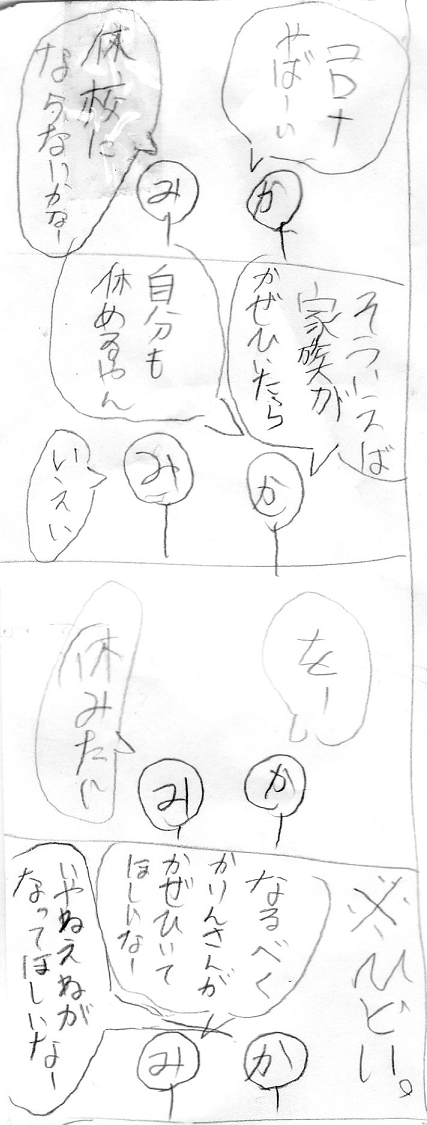 コロナ
やばーい
休校に
ならないかなー
か
み
そういえば
家族が
かぜひいたら
自分も
休めるやん
いえい
か
み
を－
休みたに
か
み
※ひどい。
なるべく
かりんさんが
かぜひいて
ほしいなー
いやねえねが
なってほしいなー
か
み